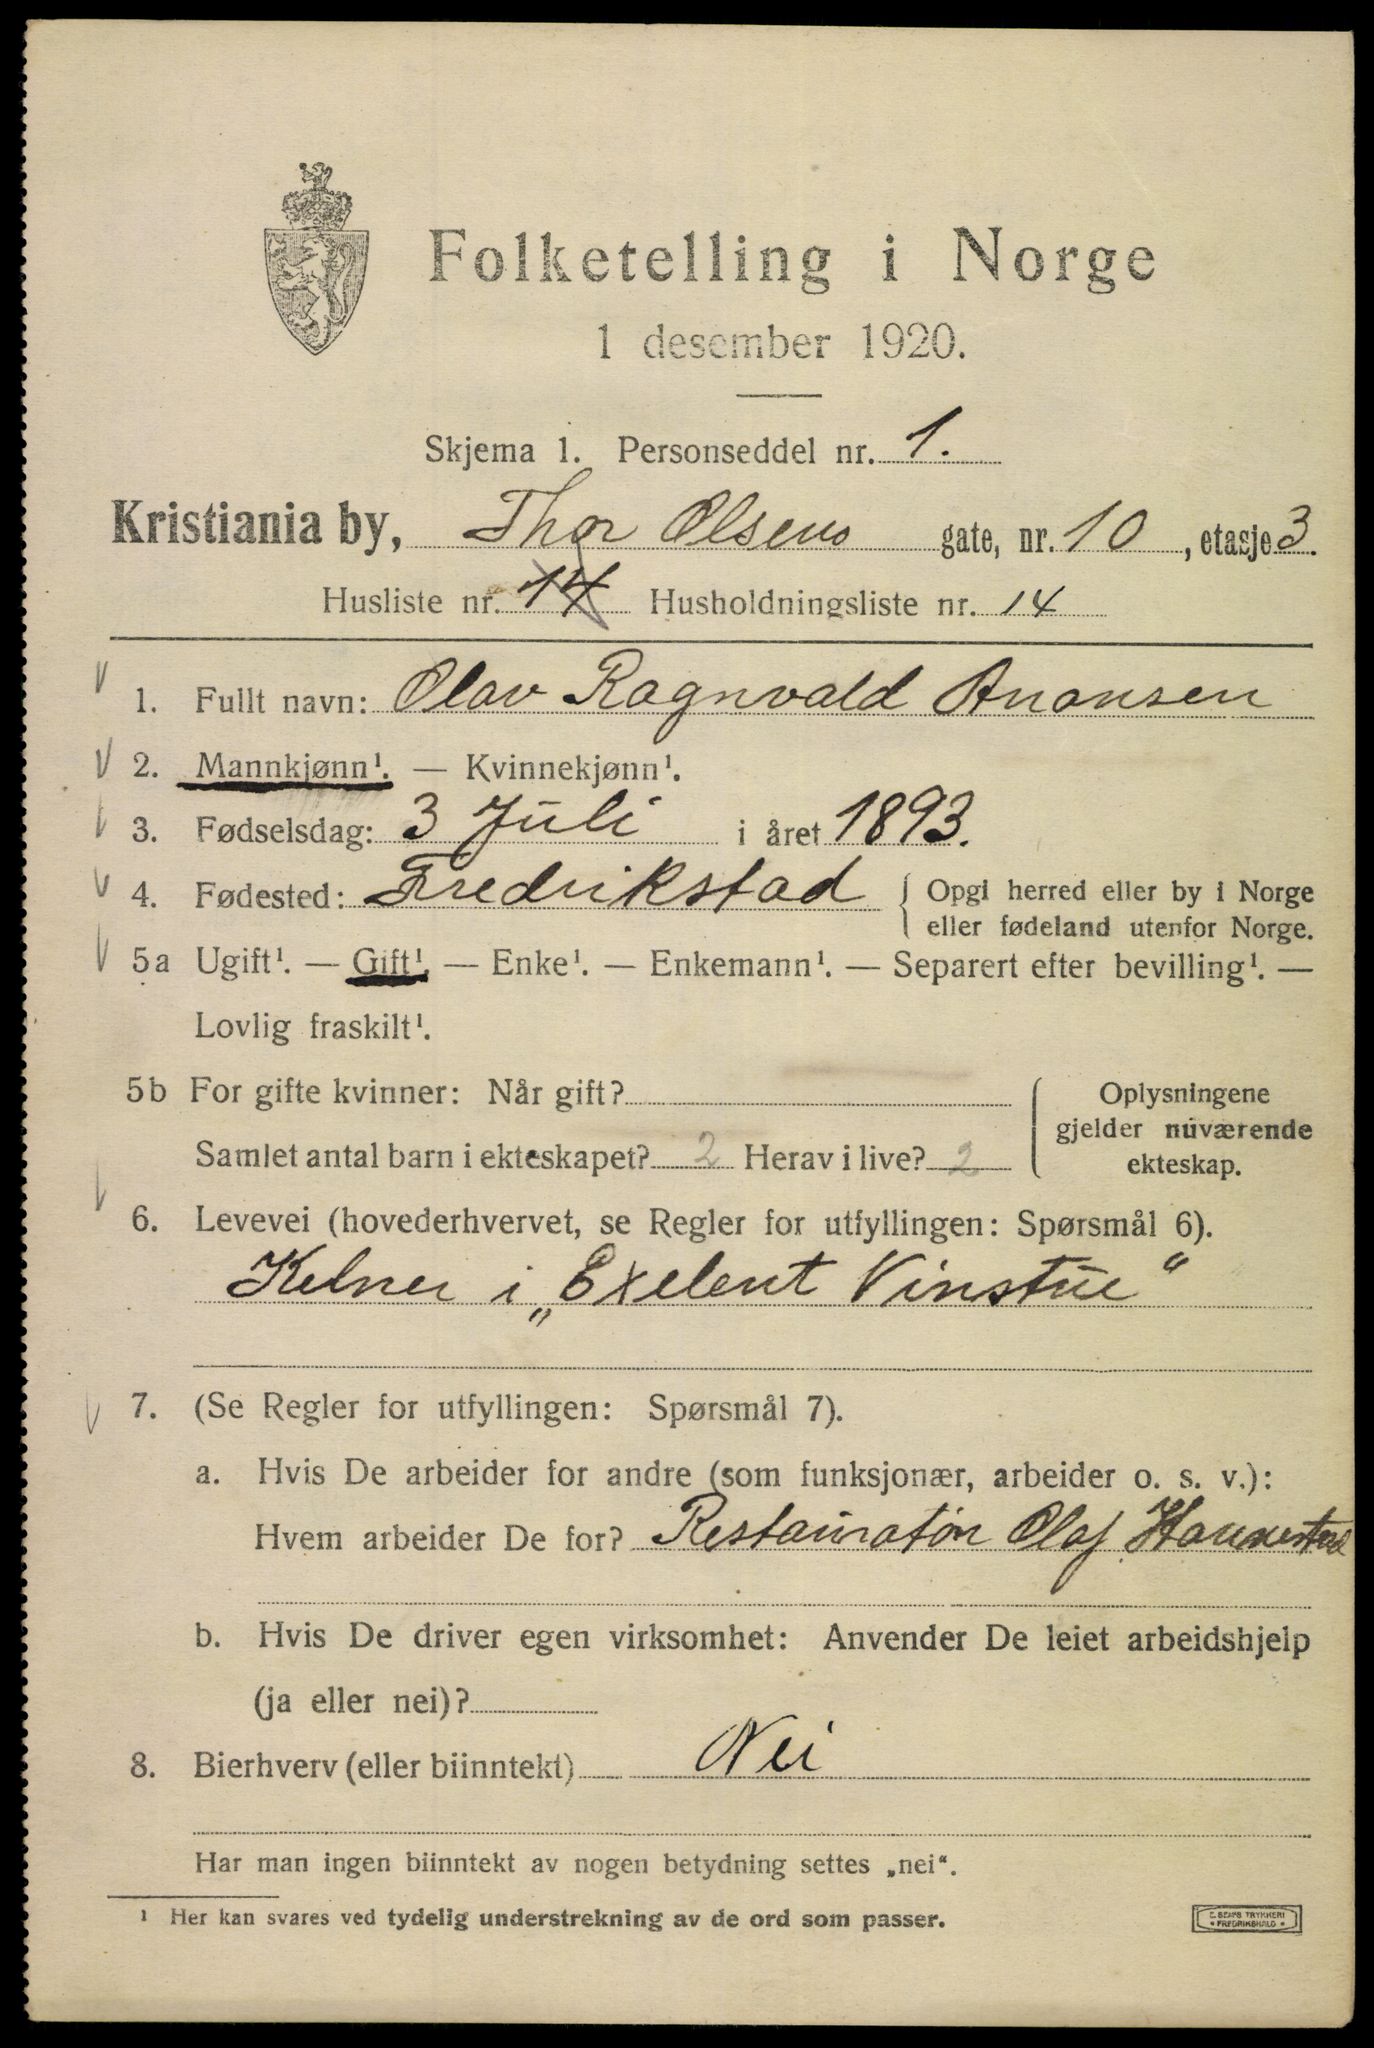 Folketelling i Norge
1 desember 1920.
Skjema 1. Personseddel nr. 1.
Kristiania by, Thor Olsens gate, nr. 10, etasje 3.
Husliste nr. 14 Husholdningsliste nr. 14
1. Fullt navn: Olav Ragnvald Anonsen
2. Mannkjønn¹. — Kvinnekjønn¹.
3. Fødselsdag: 3 Juli i året 1893.
4. Fødested: Fredrikstad { Opgi herred eller by i Norge
eller fødeland utenfor Norge.
5a Ugift¹. — Gift¹. — Enke¹. — Enkemann¹. — Separert efter bevilling¹. —
Lovlig fraskilt¹.
5b For gifte kvinner: Når gift? { Oplysningene
gjelder nuværende
Samlet antal barn i ekteskapet? 2 Herav i live? 2 ekteskap.
6. Levevei (hovederhvervet, se Regler for utfyllingen: Spørsmål 6).
Kelner i „Exelent Vinstue“
7. (Se Regler for utfyllingen: Spørsmål 7).
a. Hvis De arbeider for andre (som funksjonær, arbeider o. s. v.):
Hvem arbeider De for? Restauratør Olaf
b. Hvis De driver egen virksomhet: Anvender De leiet arbeidshjelp
(ja eller nei)?
8. Bierhverv (eller biinntekt) Nei
Har man ingen biinntekt av nogen betydning settes „nei“.
¹ Her kan svares ved tydelig understrekning av de ord som passer.
E. SEMS TRYKKERI
• FREDRIKSHALD •